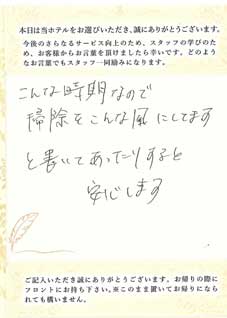 本日は当ホテルをお選びいただき、誠にありがとうございます。
今後のさらなるサービス向上のため、スタッフの学びのため、お客様からお言葉を頂けましたら幸いです。どのようなお言葉でもスタッフ一同励みになります。
こんな時期なので
掃除をこんな風にしてます
と書いてあったりすると
安心します
ご記入いただき誠にありがとうございます。お帰りの際に
フロントにお持ち下さい。※このまま置いてお帰りになら
れても構いません。